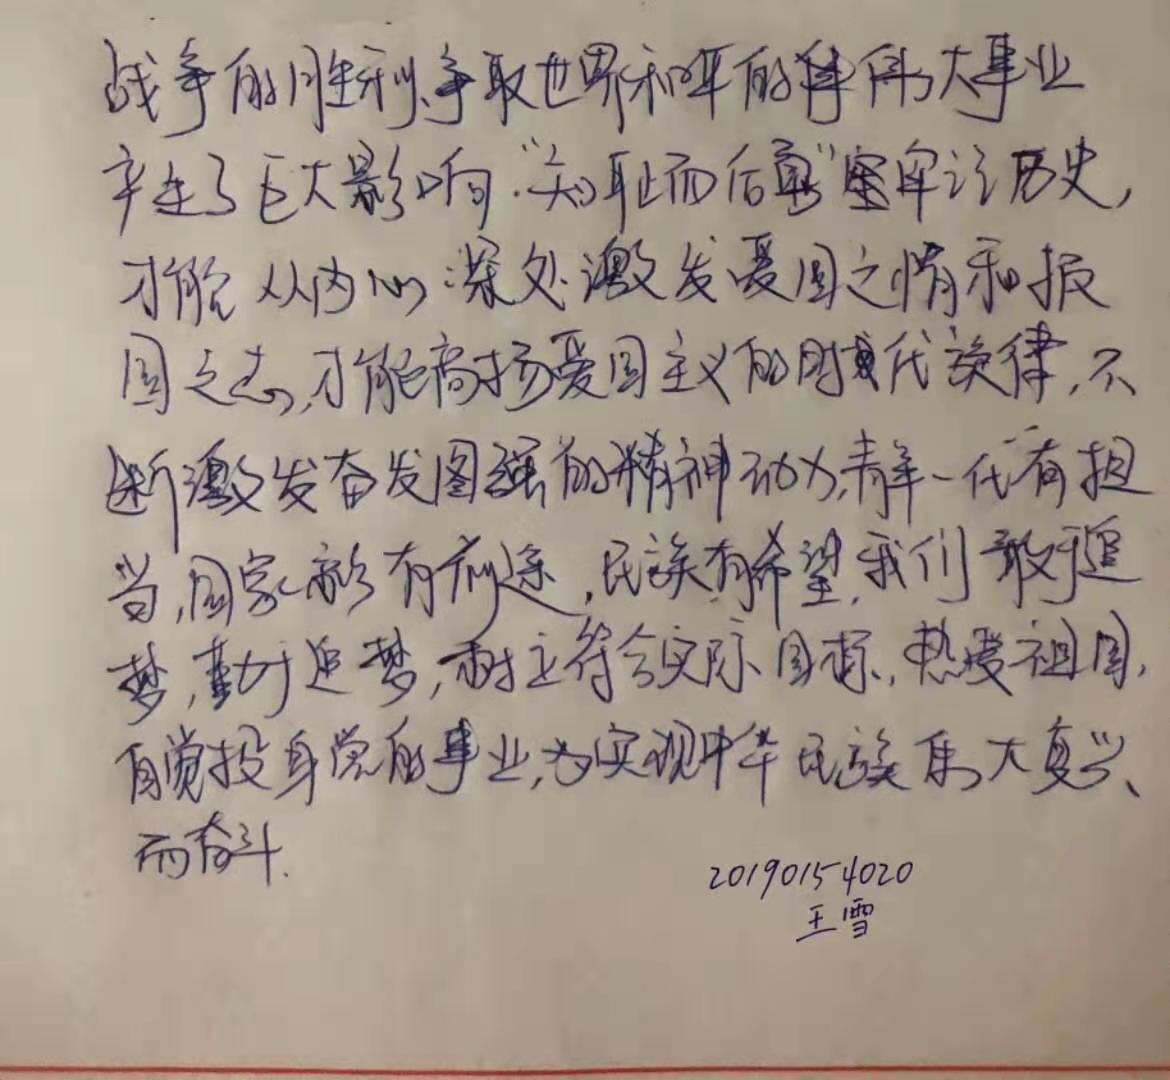 战争的胜利、争取世界和平的伟大事业
产生了巨大影响.“知耻而后勇”牢记历史,
才能从内心深处激发爱国之情和报
国之志,才能高扬爱国主义的时代旋律,不
断激发奋发图强的精神动力,青年一代有担
当,国家就有前途,民族有希望,我们敢于追
梦,勤于追梦,树立符合实际目标,热爱祖国,
自觉投身党的事业,为实现中华民族伟大复兴、
而奋斗.
20190154020
王雪